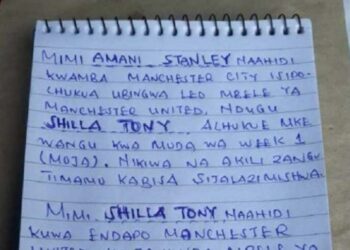 MIMI AMANI STANLEY NAAHIDI
KWAMBA MANCHESTER CITY ISIPO-
CHUKUA UBINGWA LEO MBELE YA
MANCHESTER UNITED, NDUGU
SHILLA TONY ACHUKUE MKE
WANGU KWA MUDA WA WEEK 1
(MOJA). NIKIWA NA AKILI ZANGU
TIMAMU KABISA SIJALAZIMISHWA.
MIMI SHILLA TONY NAAHIDI
KUWA ENDAPO MANCHESTER